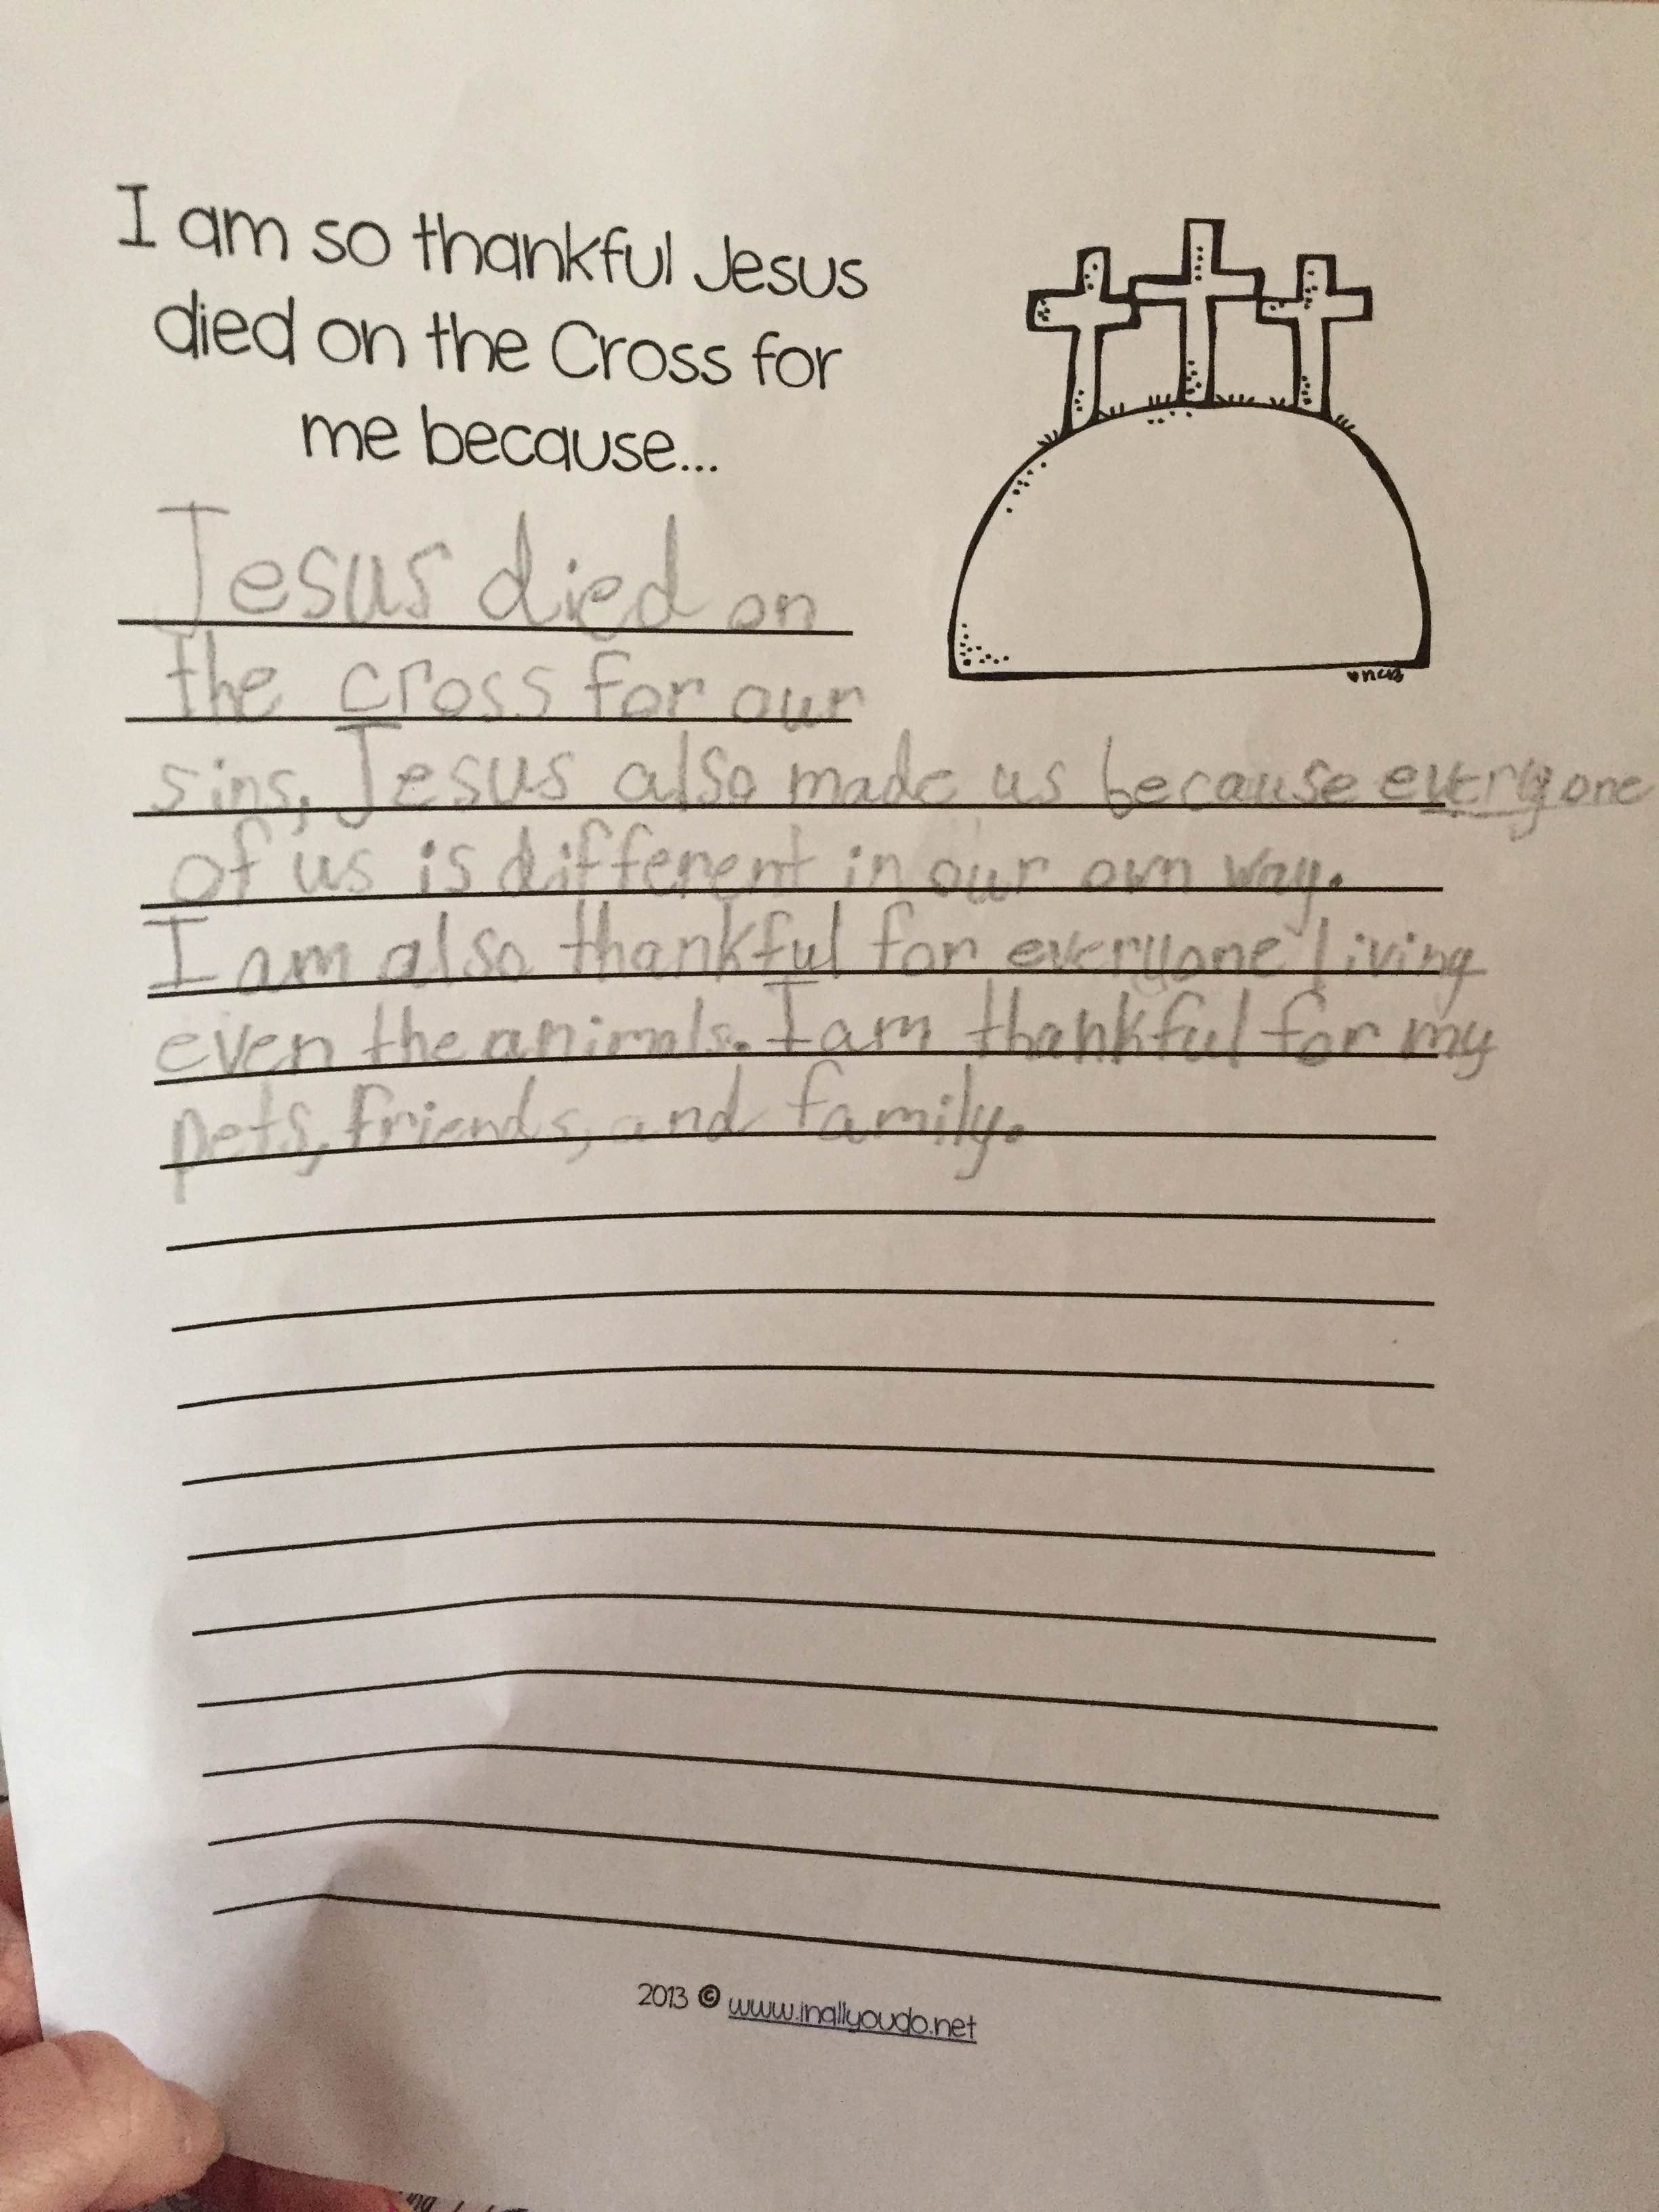 I am so thankful Jesus
died on the Cross for
me because...
Jesus died on
the cross for our
sins, Jesus also made us because everyone
of us is different in our own way.
I am also thankful for everyone living
even the animals. I am thankful for my
pets, friends, and family.
2013 © www.inallyoudo.net